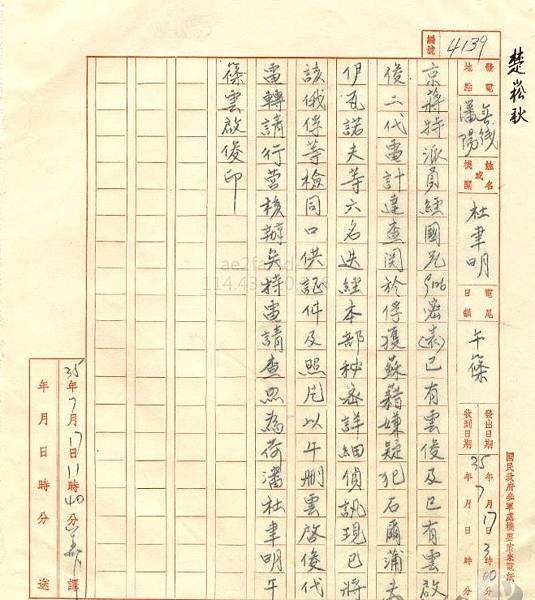 楚崧秋
編號 4139
發電地點 瀋陽
姓名或機關 杜聿明
電尾日韻 午篠
發出日期 35年7月17日3時00分
收到日期 年月日時分
國民政府參軍處機要室來電紙
京蔣特派員經國兄密已有雲俊及已有雲啟
俊二代電計達查関於俘獲蘇籍嫌疑犯石爾蒲夫
伊瓦諾夫等六名迭經本部秘密詳細偵訊現已將
該俄俘等檢同口供証件及照片以午刪雲啟俊代
電轉請行營核辦矣特電請查照為荷瀋杜聿明午
篠雲啟俊印
35年7月17日11時40分譯
年月日時分送